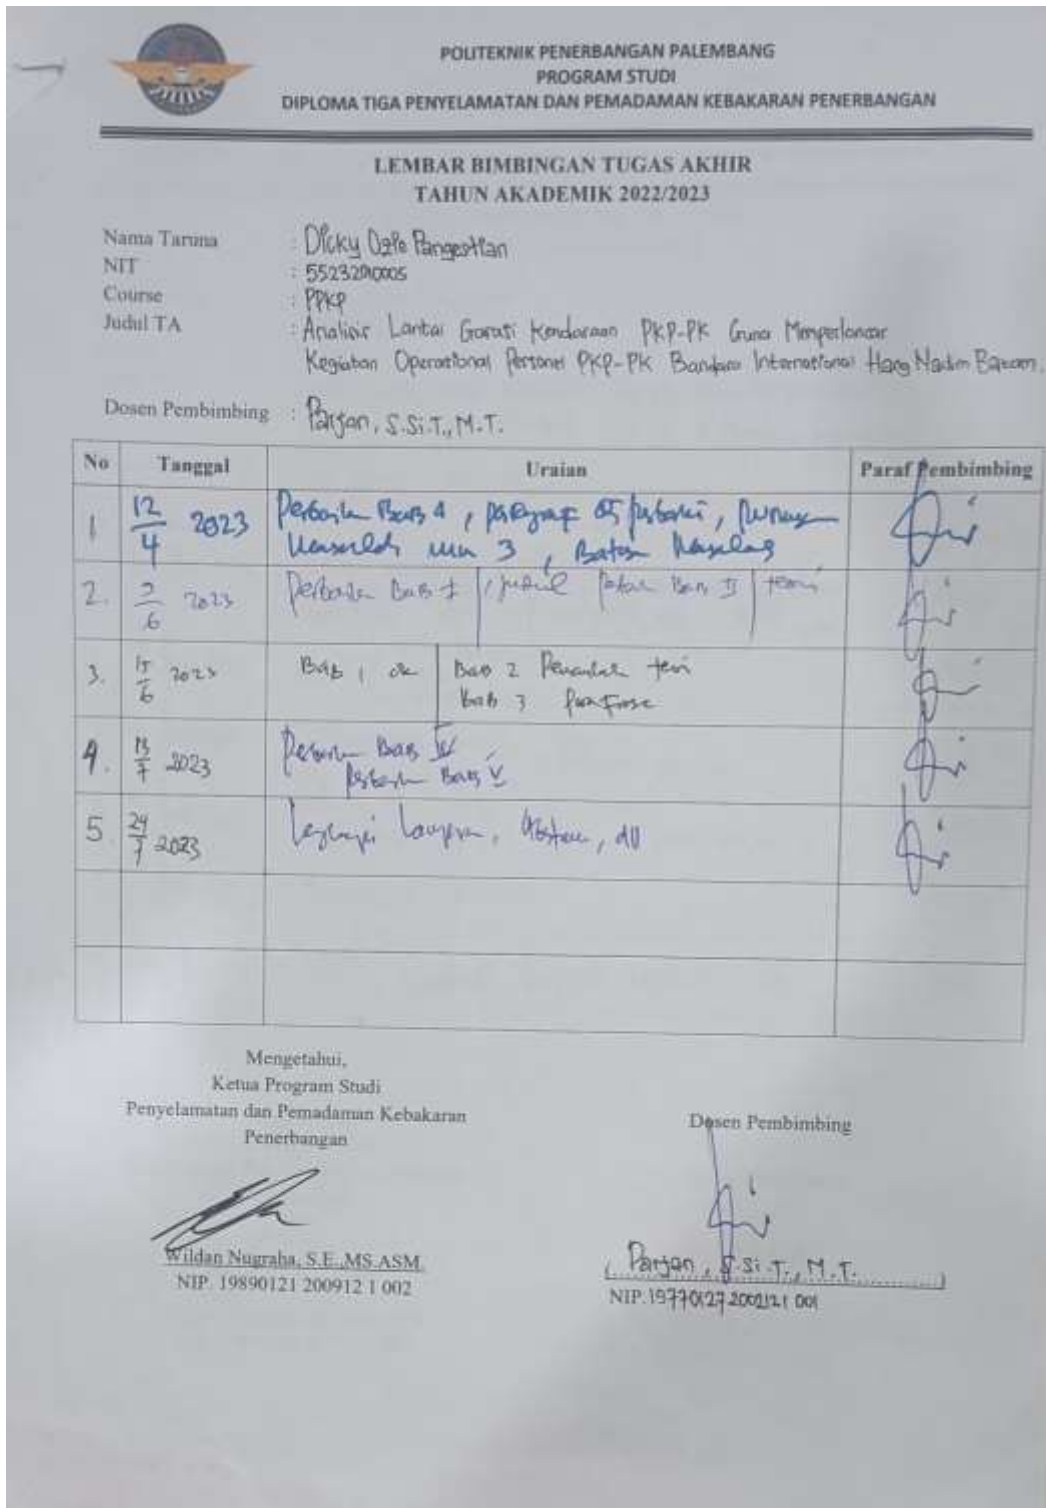 POLITEKNIK PENERBANGAN PALEMBANG
PROGRAM STUDI
DIPLOMA TIGA PENYELAMATAN DAN PEMADAMAN KEBAKARAN PENERBANGAN
LEMBAR BIMBINGAN TUGAS AKHIR
TAHUN AKADEMIK 2022/2023
Nama Taruna : Dicky Pangestian
NIT : 55232010005
Course : PPKP
Judul TA : Analisis Lantai Garasi Kendaraan PKP-PK Guna Memperlancar
Kegiatan Operasional Personel PKP-PK Bandara International Hang Nadim Batam.
Dosen Pembimbing : Parjan, S.Si.T., M.T.
No Tanggal Uraian Paraf Pembimbing
1 12/4 2023 Bab 1, paragraf diperbaiki,
3, Batasan
2. 2023 Bab I Bab II teori
3. 15/6 2023 Bab 1 ok Bab 2 teori
Bab 3
4. 2023 Bab IV
Bab V
5 24/7 2023 dll
Mengetahui,
Ketua Program Studi
Penyelamatan dan Pemadaman Kebakaran
Penerbangan
Dosen Pembimbing
Wildan Nugraha, S.E.,MS.ASM.
NIP. 19890121 200912 1 002
(Parjan, S.Si.T., M.T.)
NIP.19770127 200212 1 001